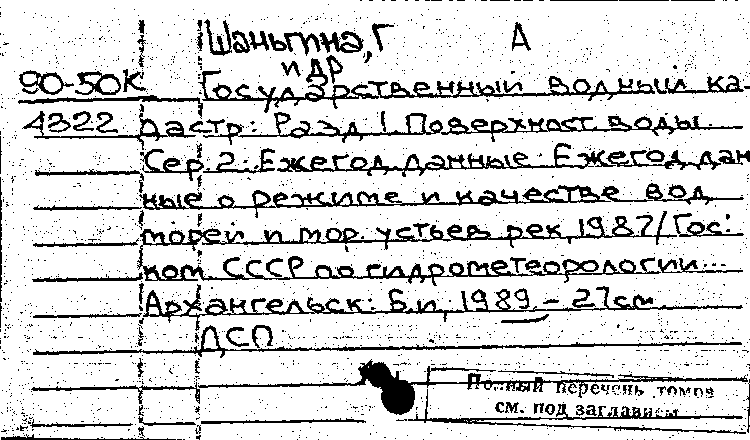 Шаньгина, Г А
и др
90-50К Государственный водный ка-
4322 дастр: Разд 1. Поверхност. воды.
Сер. 2: Ежегод. данные: Ежегод. дан
ные о режиме и качестве вод
морей и мор. устьев рек, 1987/Гос.
ком. СССР по гидрометеорологии...
Архангельск: Б.и, 1989. – 27см.
ДСП
Полный перечень томов
см. под заглавием